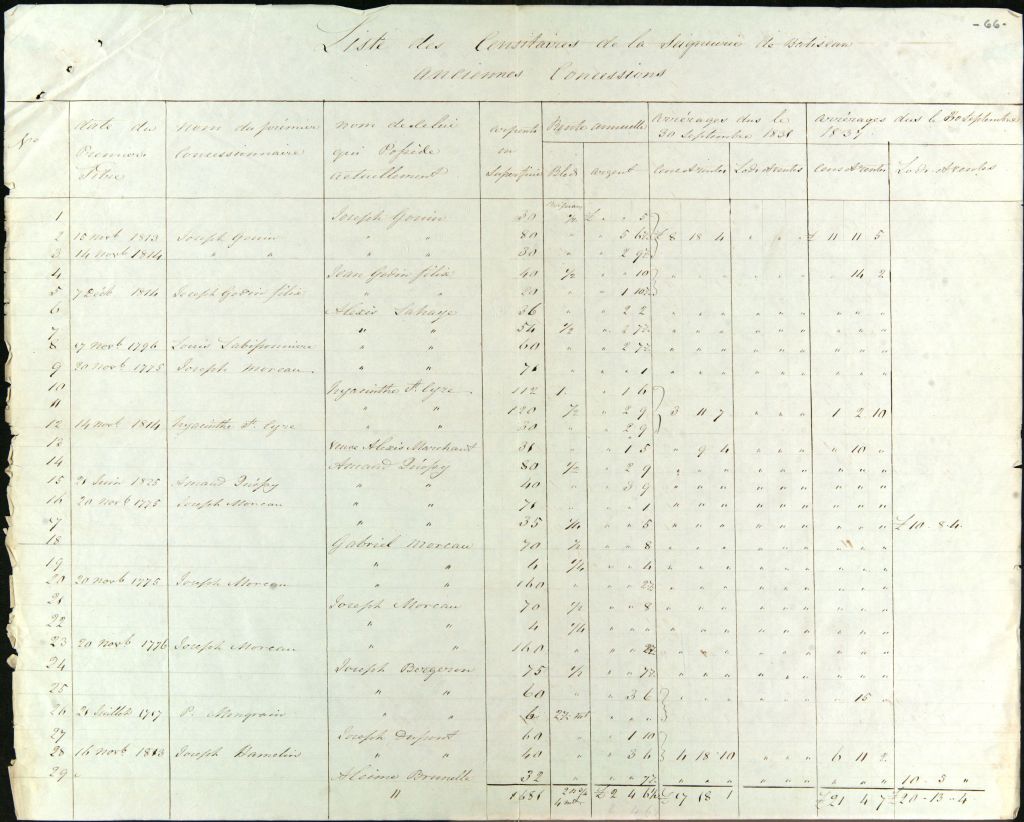 - 66 -
Liste des Censitaires de la Seigneurie de Batiscan
anciennes Concessions
Nro | date du Premier Titre | nom du premier Concessionnaire | nom de celui qui Possède actuellement | arpents en Superficie | Rente annuelle | arrérages dus le 30 Septembre 1831 | arrérages dus le 30 Septembre
Bled | argent | Cens & rentes | Lods & ventes | Cens & rentes | Lods & ventes
1 Joseph Gouin 30 ½ £ " " 5
2 15 novb 1813 Joseph Gouin " " 80 " " 5 6½ £ 8 18 4 " " " £ 11 11 5
3 14 novb 1814 " " " " 30 " " 2 9½
4 Jean Godin félix 40 ½ " " 10 " " " " " " " 14 2
5 7 Déb 1814 Joseph Godin félix " " 20 " " 1 10½
6 Alexis Lahaye 36 " " 2 2 " " " " " " " " "
7 " " 54 ½ " 2 7½ " " " " " " " " "
8 17 novb 1796 Louis Labissonniere " " 60 " " 2 7½ " " " " " " " " "
9 20 novb 1775 Joseph moreau " " 71 " " " 1 " " " " " " " " "
10 hyacinthe St. Cyre 112 1 " 1 6
11 " " 120 ½ " 2 9 3 11 7 " " " 1 2 10
12 14 novb 1814 hyacinthe St. Cyre 30 " " 2 9
13 veuve Alexis Marchand 31 " " 1 5 " 9 4 " " " " 10 "
14 Amand 80 ½ " 2 9 " " " " " " " " "
15 21 Juin 1825 Amand " " 40 " " 3 9 " " " " " " " " "
16 20 novb 1775 Joseph Moreau " " 71 " " " 1 " " " " " " " " "
17 " " 35 ¼ " " 5 " " " " " " " " " £ 10 - 8 - 4
18 Gabriel moreau 70 ½ " " 8 " " " " " " " " "
19 " " 4 ¼ " " 4 " " " " " " " " "
20 20 novb 1775 Joseph Moreau " " 160 " " " 2½ " " " " " " " " "
21 Joseph Moreau 70 ½ " " 8 " " " " " " " " "
22 " " 4 ¼ " " " " " " " " " " " "
23 20 Novb 1776 Joseph Moreau " " 160 " " " 2½ " " " " " " " " "
24 Joseph Bergeron 75 ½ " " 7½ " " " " " " " " "
25 " " 60 " " 3 6 " " " " " " " 15 "
26 21 Juillet P. Mongrain " " 6 " " "
27 Joseph Dupont 60 " " 1 10
28 16 novb 1813 Joseph Hamelin " " 40 " " 3 6 4 18 10 " " " 6 11 2
29 Brunelle 32 " " " 7½ " " " " " " " " " 10 - 5 "
" 1681 £ 2 4 6 £ 17 18 1 £ 21 4 7 £ 20 - 13 - 4